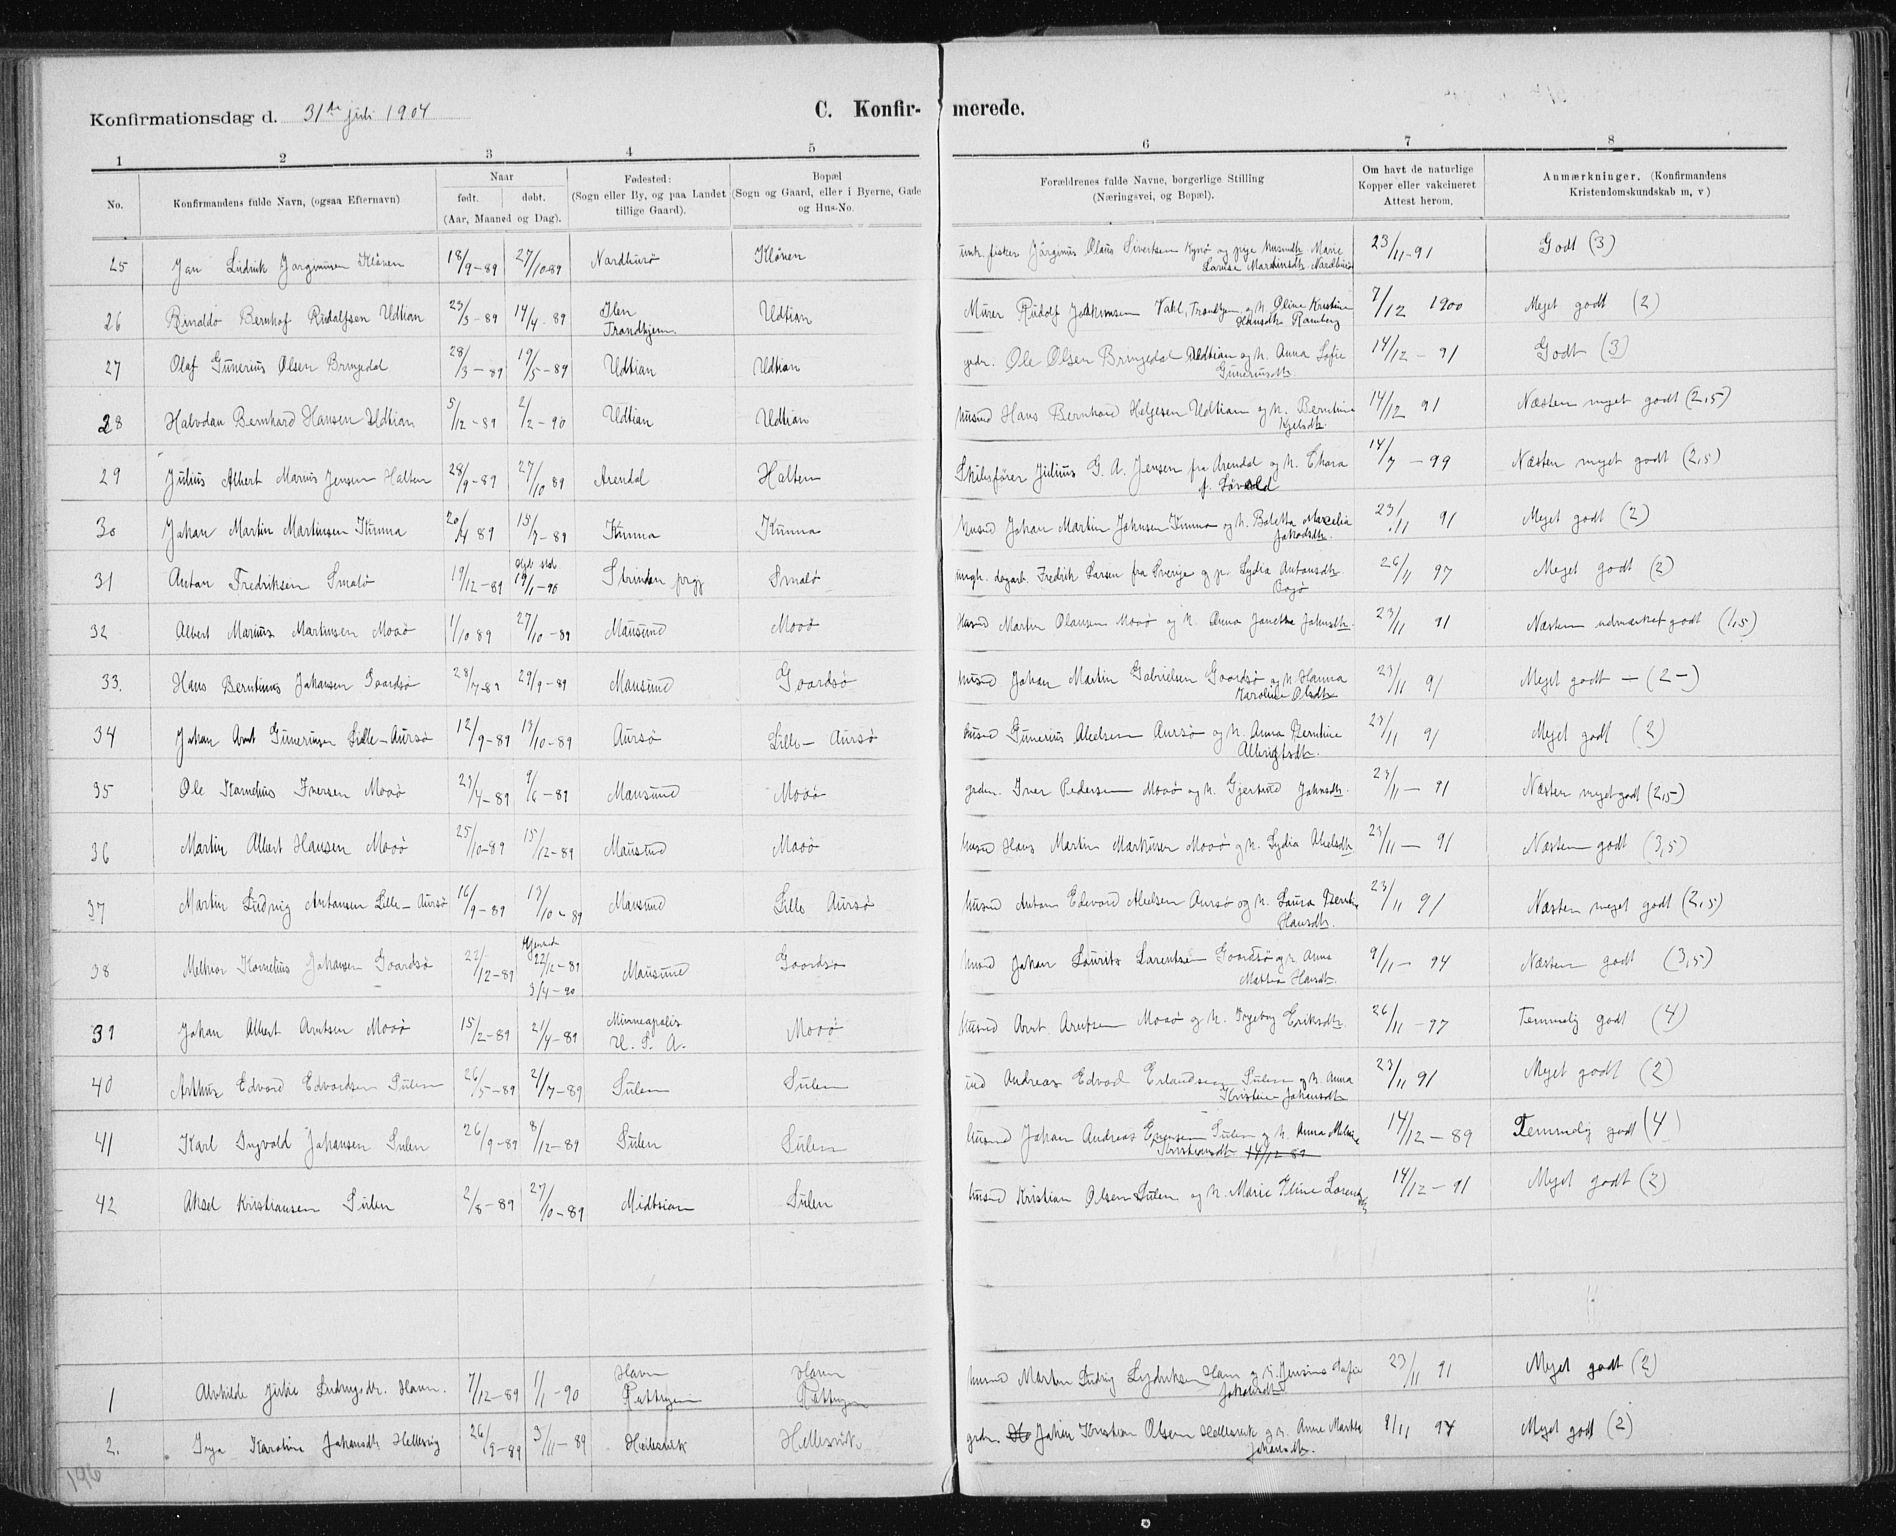 Konfirmationsdag d. 31te juli 1904
C. Konfir- merede.
1 2 3 4 5 6 7 8
No. Konfirmandens fulde Navn, (ogsaa Efternavn) Naar født. døbt. (Aar, Maaned og Dag). Fødested: (Sogn eller By, og paa Landet tillige Gaard). Bopæl (Sogn og Gaard, eller i Byerne, Gade og Hus-No. Forældrenes fulde Navne, borgerlige Stilling (Næringsvei, og Bopæl). Om havt de naturlige Kopper eller vakcineret Attest herom. Anmærkninger. (Konfirmandens Kristendomskundskab m, v)
25 Jan Ludvik Jørginusen Kløven 18/9-89 27/10-89 Nordburø Kløven fisker Jørginus Olaus Sivertsen og pige Marie Larise Martinsdtr. 23/11-91 Godt (3)
26 Rinaldo Bernhof Rudolfsen Udtian 23/3-89 14/4-89 Ilen Trondhjem Udtian Murer Rudolf Vahl, Trondhjem og h. Oline Kristine Hansdtr. Ramberg 7/12 1900 Meget godt (2)
27 Olaf Gunerius Olsen Bringedal 28/3-89 19/5-89 Udtian Udtian grdr. Ole Olsen Bringedal Udtian og h. Anna Sofie Guneriusdtr. 14/12-91 Godt (3)
28 Halvdan Bernhard Hansen Udtian 5/12-89 2/2-90 Udtian Udtian husmd Hans Bernhard Helgesen Udtian og h. Berntine 14/12 91 Næsten meget godt (2,5)
29 Julius Albert Marius Jensen Halten 28/9-89 27/10 89 Arendal Halten Skibsfører Julius G. A. Jensen fra Arendal og h. Thora f. Løvold 14/7-99 Næsten meget godt (2,5)
30 Johan Martin Martinsen Kunna 20/4 89 15/7-89 Kunna Kunna husmd Johan Martin Johnsen Kunna og h. Boletta 23/11 91 Meget godt (2)
31 Anton Fredriksen Smalø 19/12-89 19/1-90 Strinden prgj Smalø ungk. dagarb. Fredrik Larsen fra Sverige og p. Lydia Antonsdtr. 26/11 97 Meget godt (2)
32 Albert Marius Martinsen Moaø 1/10 89 27/10-89 Mausund Moaø husmd Martin Olausen Moaø og h. Anna Janetta Johnsdtr. 23/11 91 Næsten udmærket godt (1,5)
33. Hans Berntinus Johansen Gaardsø 28/7-89 29/9-89 Mausund Gaardsø husmd Johan Martin Gabrielsen Gaardsø og h. Hanna Karoline Olsdtr 23/11 91 Meget godt – (2-)
34 Johan Arnt Guneriusen Lille-Aursø 12/9-89 13/10-89 Aursø Lille-Aursø husmd Gunerius Akselsen Aursø og h. Anna Berntine Albrigtsdtr. 23/11 91 Meget godt (2)
35 Ole Kornelius Iversen Moaø 23/4-89 9/6-89 Mausund Moaø grdm. Iver Pedersen Moaø og h. Gjertrud Johnsdtr. 23/11-91 Næsten meget godt (2,5)
36 Martin Albert Hansen Moaø 25/10-89 15/12-89 Mausund Moaø husmd Hans Martin Markusen Moaø og h. Lydia Akselsdtr 23/11-91 Næsten godt (3,5)
37 Martin Ludvig Antonsen Lille-Aursø 16/9-89 13/10-89 Mausund Lille Aursø husmd Anton Edevard Akselsen Aursø og h. Laura Hansdtr. 23/11 91 Næsten meget godt (2,5)
38 Melkior Kornelius Johansen Gaardsø 22/12-89 Hjemmed. 22/12-89 3/4-90 Mausund Gaardsø husmd Johan Laurits Larentsen Gaardsø og h. Anna Mattea Hansdtr. 9/11-94 Næsten godt (3,5)
39 Johan Albert Arntsen Moaø 15/2-89 21/4-89 Minneapolis U. S. A. Moaø husmd Arnt Arntsen Moaø og h. Ingebrg Eriksdtr 26/11-97 Temmelig godt (4)
40 Arthur Edvard Edvardsen Sulen 26/5-89 21/7-89 Sulen Sulen ind Andreas Edvard Erlandsen Sulen og h. Anna Kristine Johansdtr 23/11 91 Meget godt (2)
41 Karl Ingvald Johansen Sulen 26/9-89 8/12-89 Sulen Sulen husmd Johan Andreas Sulen og h. Anna Kristiansdtr 14/12 89 14/12-89 Temmelig godt (4)
42 Aksel Kristiansen Sulen 2/8-89 27/10-89 Midtsian Sulen husmd Kristian Olsen Sulen og h. Marie Eline 14/12-91 Meget godt (2)
1 Alvhilde Julie Ludvigsdtr. Havn. 7/12-89 1/1-90 Havn Havn husmd Morten Ludvig Lydriksen Havn og h. Jensine Sofie Johansdtr 23/11 91 Meget godt (2)
2. Inga Karoline Johansdtr Hellesvig 26/9-89 3/11-89 Hellesvik Hellesvik grdm. Johan Kristian Olsen Hellesvik og h. Anne Martha Johansdtr. 9/11 94 Meget godt (2)
196